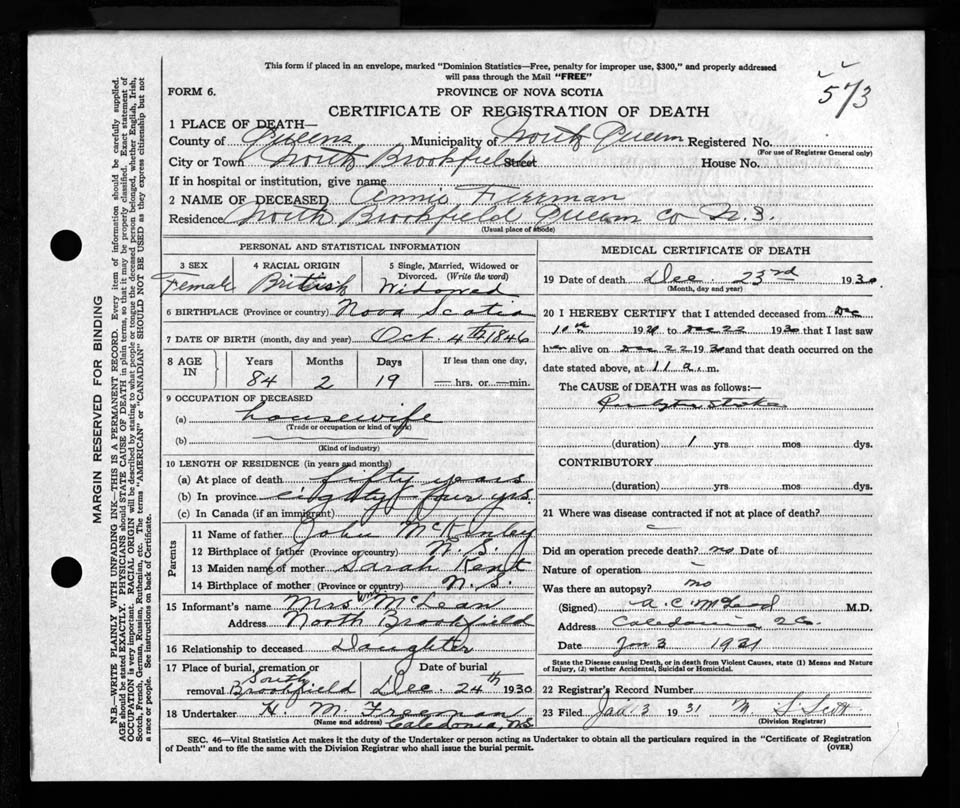 This form if placed in an envelope, marked "Dominion Statistics—Free, penalty for improper use, $300," and properly addressed
will pass through the Mail "FREE"
573
FORM 6. PROVINCE OF NOVA SCOTIA
CERTIFICATE OF REGISTRATION OF DEATH
1 PLACE OF DEATH—
County of Queens Municipality of North Queens Registered No.
(For use of Registrar General only)
City or Town North Brookfield Street House No.
If in hospital or institution, give name
2 NAME OF DECEASED Annie
Residence North Brookfield Queens Co N.S.
(Usual place of abode)
PERSONAL AND STATISTICAL INFORMATION
3 SEX 4 RACIAL ORIGIN 5 Single, Married, Widowed or
Divorced. (Write the word)
Female British Widowed
6 BIRTHPLACE (Province or country) Nova Scotia
7 DATE OF BIRTH (month, day and year) Oct. 4th 1846
8 AGE IN Years Months Days If less than one day,
84 2 19 hrs. or min.
9 OCCUPATION OF DECEASED
(a) housewife
(Trade or occupation or kind of work)
(b)
(Kind of industry)
10 LENGTH OF RESIDENCE (in years and months)
(a) At place of death fifty years
(b) In province eighty four yrs.
(c) In Canada (if an immigrant)
Parents
11 Name of father John McKinley
12 Birthplace of father (Province or country) N.S.
13 Maiden name of mother Sarah Kent
14 Birthplace of mother (Province or country) N.S.
15 Informant's name Mrs Wm McLean
Address North Brookfield
16 Relationship to deceased Daughter
17 Place of burial, cremation or Date of burial
removal South Brookfield Dec. 24th 1930
18 Undertaker H. M. Freeman
(Name and address) Caledonia, N.S.
MEDICAL CERTIFICATE OF DEATH
19 Date of death Dec. 23rd 1930
(Month, day and year)
20 I HEREBY CERTIFY that I attended deceased from Dec
10th 19 to Dec 22 1930 that I last saw
her alive on Dec 22 1930 and that death occurred on the
date stated above, at 11 a. m.
The CAUSE of DEATH was as follows:—
(duration) 1 yrs mos dys.
CONTRIBUTORY
(duration) yrs mos dys.
21 Where was disease contracted if not at place of death?
Did an operation precede death? no Date of
Nature of operation
Was there an autopsy? no
(Signed) A. C. McLeod M.D.
Address Caledonia
Date Jan 3 1931
State the Disease causing Death, or in death from Violent Causes, state (1) Means and Nature
of Injury, (2) whether Accidental, Suicidal or Homicidal.
22 Registrar's Record Number
23 Filed Jan 3 1931
(Division Registrar)
SEC. 46—Vital Statistics Act makes it the duty of the Undertaker or person acting as Undertaker to obtain all the particulars required in the "Certificate of Registration
of Death" and to file the same with the Division Registrar who shall issue the burial permit.
(OVER)
MARGIN RESERVED FOR BINDING
N.B.—WRITE PLAINLY WITH UNFADING INK—THIS IS A PERMANENT RECORD. Every item of information should be carefully supplied.
AGE should be stated EXACTLY. PHYSICIANS should STATE CAUSE OF DEATH in plain terms, so that it may be properly classified. Exact statement of
OCCUPATION is very important. RACIAL ORIGIN will be described by stating to what people or tongue the deceased person belonged, whether English, Irish,
Scotch, French, German, Russian, Ruthenian, etc. The terms "AMERICAN" or "CANADIAN" SHOULD NOT BE USED as they express citizenship but not
a race or people. See instructions on back of Certificate.